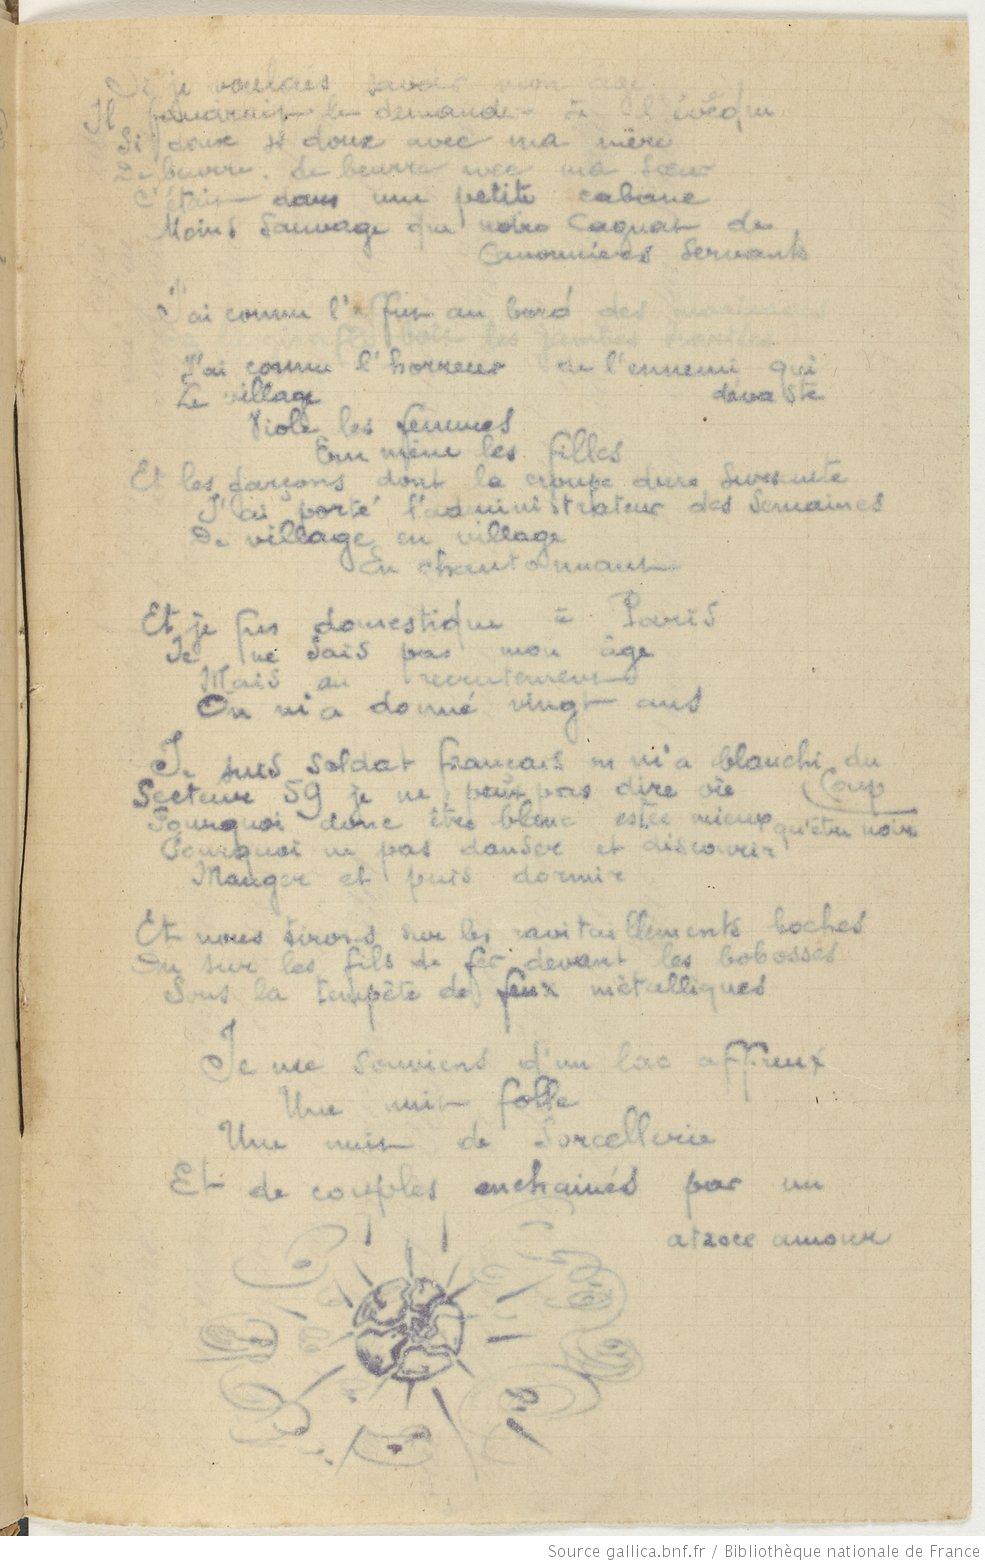 Si je voulais savoir mon age
Il faudrait le demander à l'évêque
Si doux si doux avec ma mère
De beurre, de beurre avec ma sœur
C'était dans une petite cabane
Moins sauvage que notre Cagnat de
Canonniers Servants
J'ai connu l'affut au bord des
les jambes
J'ai connu l'horreur de l'ennemi qui
Le village dévaste
Viole les femmes
Emmène les filles
Et les garçons dont la croupe dure sursaute
J'ai porté l'administrateur des semaines
De village en village
En chantonnant
Et je fus domestique à Paris
Je ne sais pas mon âge
Mais au recrutement
On m'a donné vingt ans
Je suis soldat français on m'a blanchi du
Secteur 59 je ne peux pas dire où Coup
Pourquoi donc être blanc est ce mieux qu'être noir
Pourquoi ne pas danser et discourir
Manger et puis dormir
Et nous tirons sur les ravitaillements boches
Ou sur les fils de fer devant les bobosses
Sous la tempête de feux métalliques
Je me souviens d'un lac affreux
Une nuit folle
Une nuit de Sorcellerie
Et de couples enchainés par un
atroce amour
Source gallica.bnf.fr / Bibliothèque nationale de France